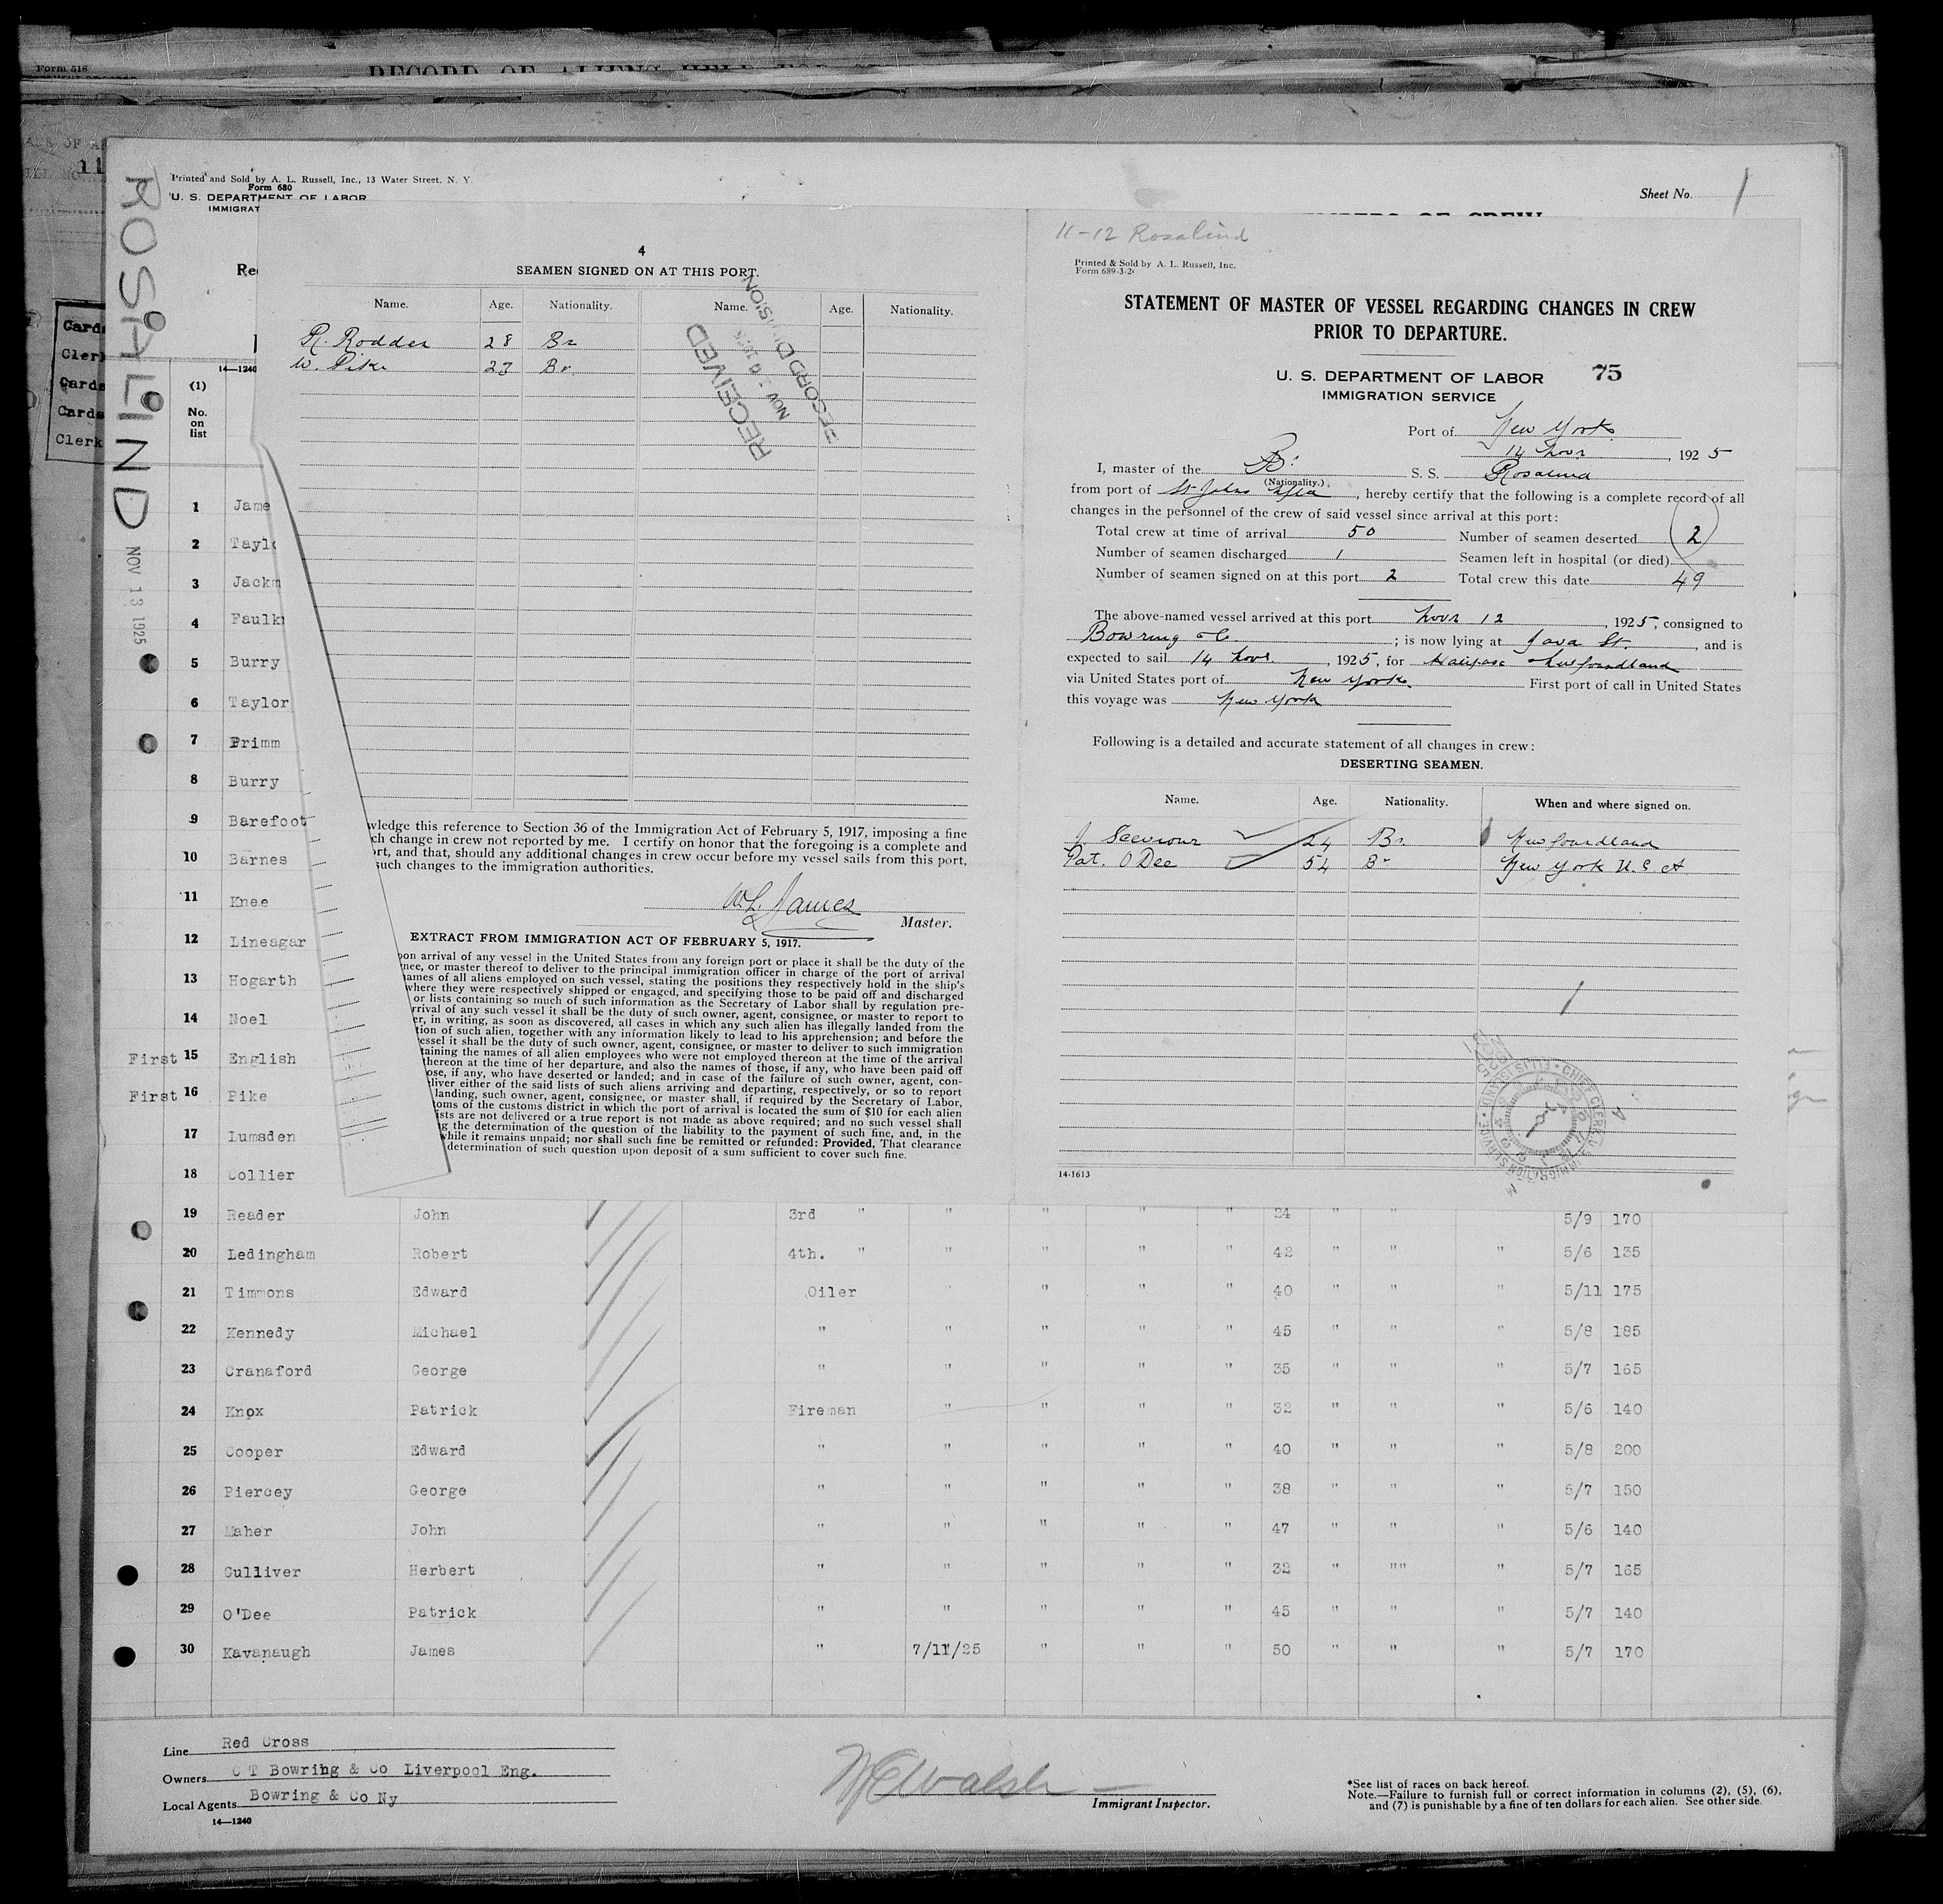 Form 518
RECORD OF ALIENS HELD FOR
11
Cards
Clerk
Cards
Cards
Clerk
ROSALIND
NOV 13 1925
Printed and Sold by A. L. Russell, Inc., 13 Water Street, N. Y.
Form 680
U. S. DEPARTMENT OF LABOR
IMMIGRAT
Sheet No. 1
MEMBERS OF CREW
14—1240
(1)
No.
on
list
1 Jame
2 Taylo
3 Jackm
4 Faulk
5 Burry
6 Taylor
7 Primm
8 Burry
9 Barefoot
10 Barnes
11 Knee
12 Lineagar
13 Hogarth
14 Noel
First 15 English
First 16 Pike
17 Lumsden
18 Collier
4
SEAMEN SIGNED ON AT THIS PORT.
Name. Age. Nationality. Name. Age. Nationality.
R. Rodder 28 Br
W. Pike 23 Br.
RECEIVED
NOV 1
RECORD DIVISION
wledge this reference to Section 36 of the Immigration Act of February 5, 1917, imposing a fine
ch change in crew not reported by me. I certify on honor that the foregoing is a complete and
rt, and that, should any additional changes in crew occur before my vessel sails from this port,
such changes to the immigration authorities.
W. L. James
Master.
EXTRACT FROM IMMIGRATION ACT OF FEBRUARY 5, 1917.
pon arrival of any vessel in the United States from any foreign port or place it shall be the duty of the
nee, or master thereof to deliver to the principal immigration officer in charge of the port of arrival
names of all aliens employed on such vessel, stating the positions they respectively hold in the ship's
where they were respectively shipped or engaged, and specifying those to be paid off and discharged
or lists containing so much of such information as the Secretary of Labor shall by regulation pre-
rrival of any such vessel it shall be the duty of such owner, agent, consignee, or master to report to
er, in writing, as soon as discovered, all cases in which any such alien has illegally landed from the
tion of such alien, together with any information likely to lead to his apprehension; and before the
essel it shall be the duty of such owner, agent, consignee, or master to deliver to such immigration
taining the names of all alien employees who were not employed thereon at the time of the arrival
thereon at the time of her departure, and also the names of those, if any, who have been paid off
ose, if any, who have deserted or landed; and in case of the failure of such owner, agent, con-
eliver either of the said lists of such aliens arriving and departing, respectively, or so to report
landing, such owner, agent, consignee, or master shall, if required by the Secretary of Labor,
toms of the customs district in which the port of arrival is located the sum of $10 for each alien
ists are not delivered or a true report is not made as above required; and no such vessel shall
g the determination of the question of the liability to the payment of such fine, and, in the
while it remains unpaid; nor shall such fine be remitted or refunded: Provided, That clearance
determination of such question upon deposit of a sum sufficient to cover such fine.
11-12 Rosalind
Printed & Sold by A. L. Russell, Inc.
Form 689-3-24
STATEMENT OF MASTER OF VESSEL REGARDING CHANGES IN CREW
PRIOR TO DEPARTURE.
U. S. DEPARTMENT OF LABOR 75
IMMIGRATION SERVICE
Port of New York
14 Novr, 1925
I, master of the Br. S. S. Rosalind
(Nationality.)
from port of St Johns Nfld, hereby certify that the following is a complete record of all
changes in the personnel of the crew of said vessel since arrival at this port:
Total crew at time of arrival 50 Number of seamen deserted 2
Number of seamen discharged 1 Seamen left in hospital (or died)
Number of seamen signed on at this port 2 Total crew this date 49
The above-named vessel arrived at this port Novr 12, 1925, consigned to
Bowring & Co; is now lying at Java St., and is
expected to sail 14 Novr., 1925, for Halifax Newfoundland
via United States port of New York. First port of call in United States
this voyage was New York
Following is a detailed and accurate statement of all changes in crew:
DESERTING SEAMEN.
Name. Age. Nationality. When and where signed on.
J. Seeviour 24 Br. Newfoundland
Pat. O Dee 54 Br New York U.S.A
1
CHIEF CLERK U.S. IMMIGRATION SERVICE ELLIS ISLAND
14-1613
19 Reader John 3rd " " " " " 24 " " 5/9 170
20 Ledingham Robert 4th. " " " " " 42 " " " 5/6 135
21 Timmons Edward Oiler " " " 40 " " " 5/11 175
22 Kennedy Michael " " " " " 45 " " " 5/8 185
23 Cranaford George " " " " " 35 " " " 5/7 165
24 Knox Patrick Fireman " " " " 32 " " " 5/6 140
25 Cooper Edward " " " " " 40 " " " 5/8 200
26 Piercey George " " " " " 38 " " " 5/7 150
27 Maher John " " " " " 47 " " " 5/6 140
28 Gulliver Herbert " " " " " 32 " "" " 5/7 165
29 O'Dee Patrick " " " " " 45 " " " 5/7 140
30 Kavanaugh James " 7/11/25 " " " 50 " " " 5/7 170
Line Red Cross
Owners C T Bowring & Co Liverpool Eng.
Local Agents Bowring & Co Ny
14—1240
Walsh
Immigrant Inspector.
*See list of races on back hereof.
Note.—Failure to furnish full or correct information in columns (2), (5), (6),
and (7) is punishable by a fine of ten dollars for each alien. See other side.